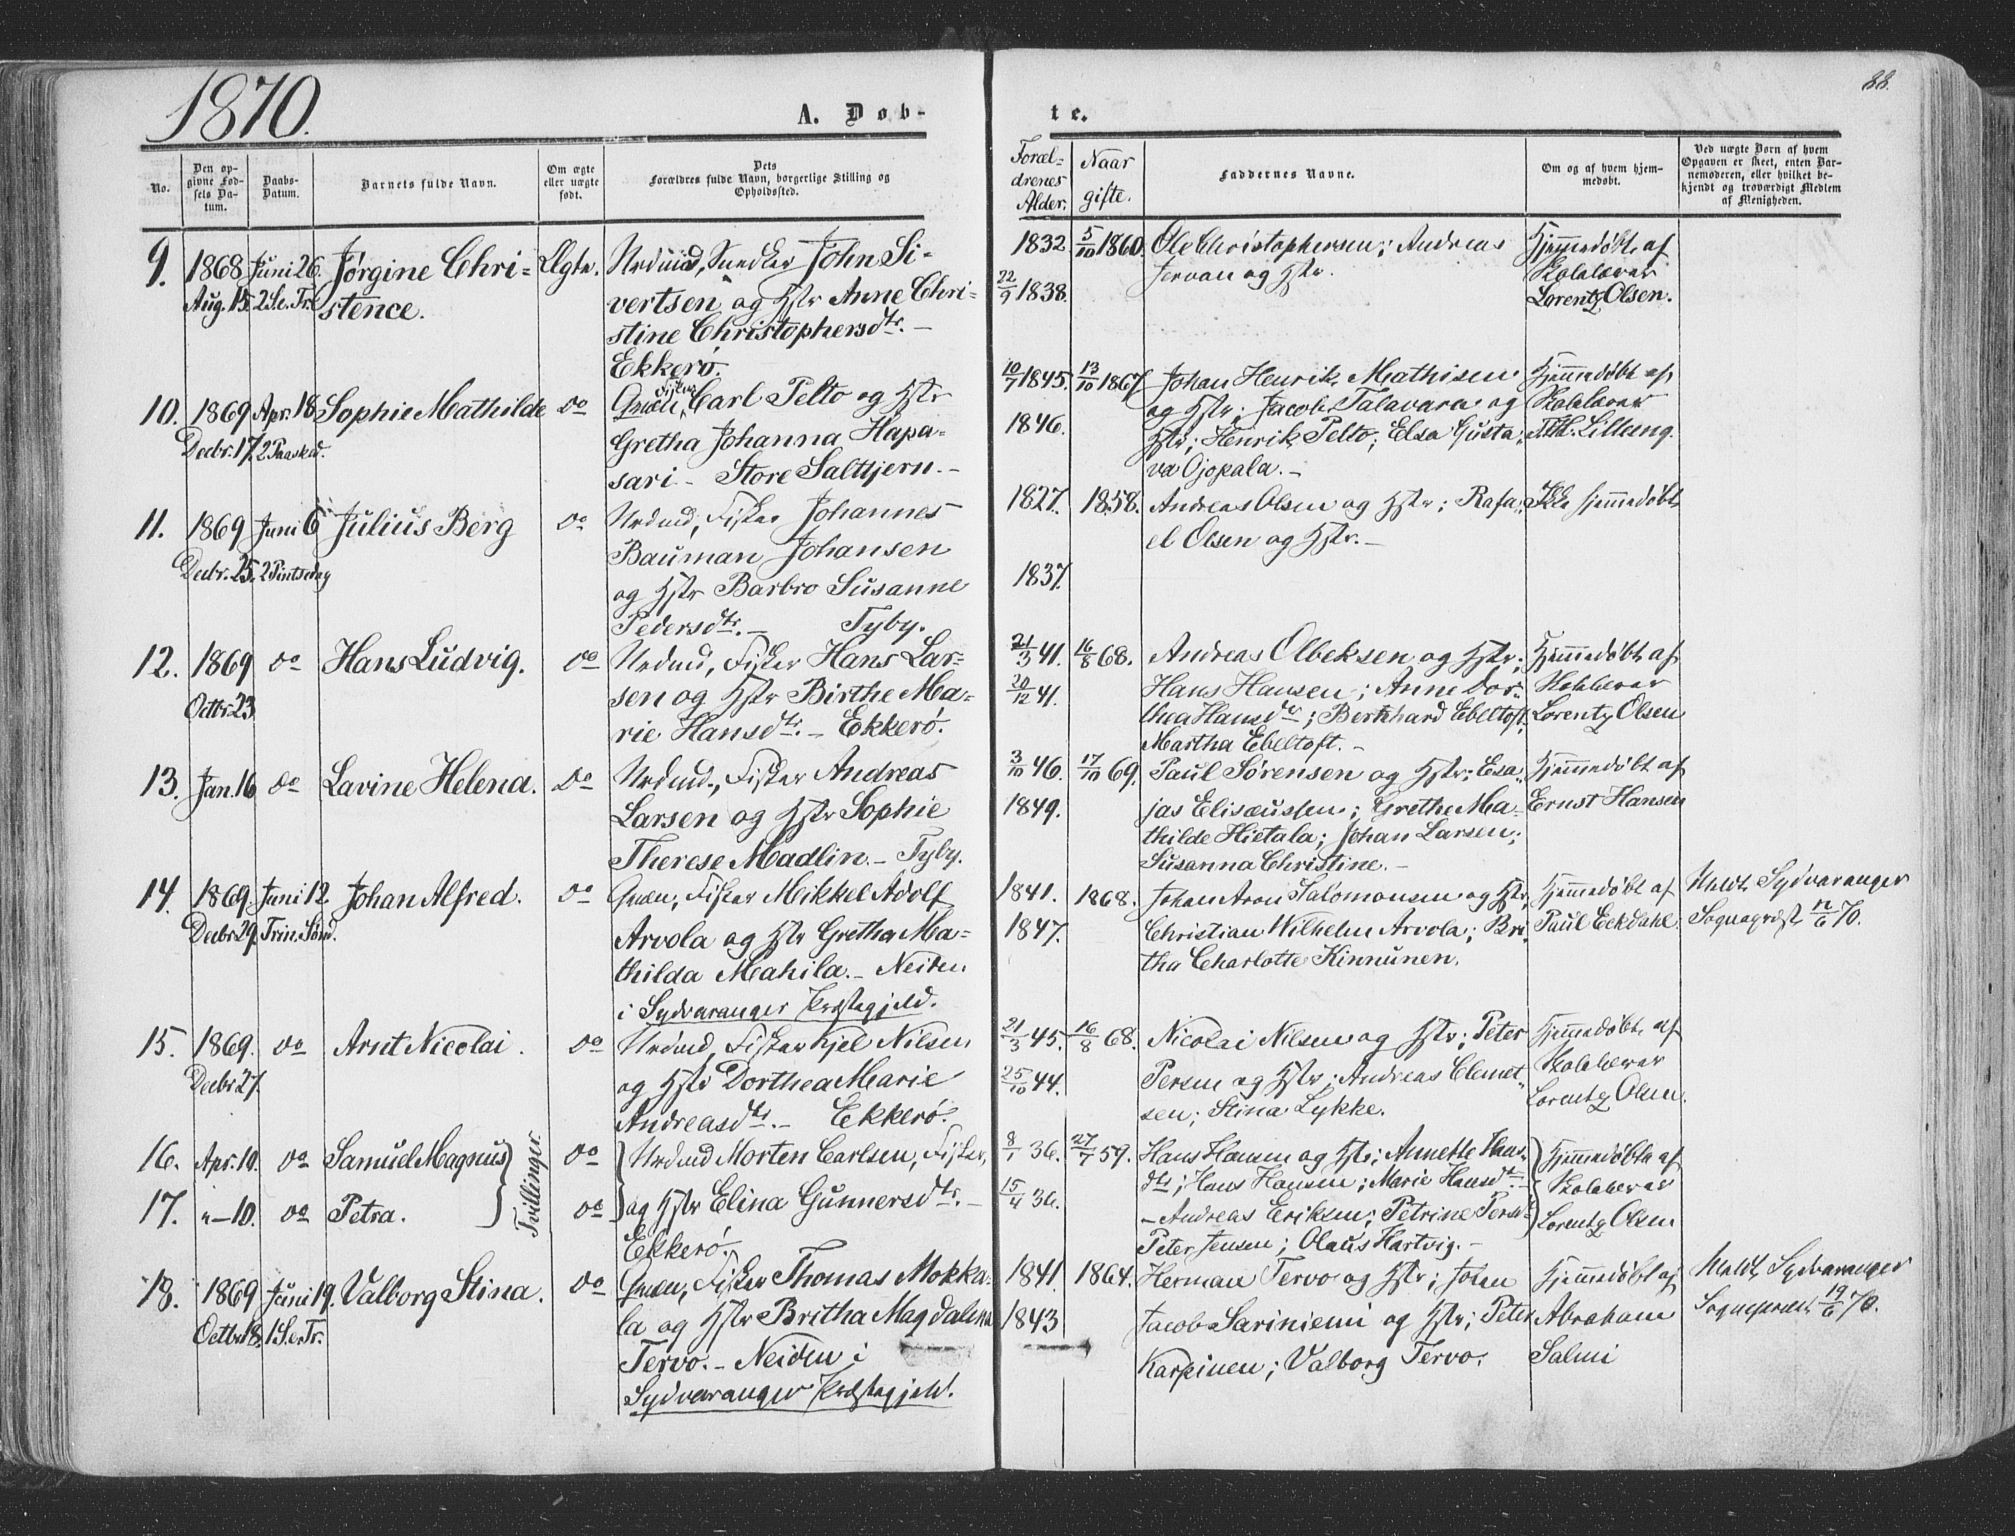 1870.
88.
A. Døb-
te.
No.
Den op-
givne Fød-
sels Da-
tum.
Daabs-
Datum.
Barnets fulde Navn.
Om ægte
eller uægte
født.
Dets
Forældres fulde Navn, borgerlige Stilling og
Opholdssted.
Foræl-
drenes
Alder.
Naar
gifte.
Faddernes Navne.
Om og af hvem hjem-
medøbt.
Ved uægte Børn af hvem
Opgaven er skeet, enten Bar-
nemoderen, eller hvilket be-
kjendt og troværdigt Medlem
af Menigheden.
9.
1868
Aug. 15.
Juni 26.
2 S. e. Tr.
Jørgine Chri-
stence.
Ægte.
Nrdmd, Snedker John Si-
vertsen og Hstr Anne Chri-
stine Christophersdtr. –
Ekkerø.
1832
22/9 1838.
5/10 1860.
Ole Christophersen; Andreas
Jervan og Hstr.
Hjemmedøbt af
Skolelærer
Lorentz Olsen.
10.
1869
Decbr. 17.
Apr. 18
2 Paasked.
Sophie Mathilde
do
Qvæn, Fisker Carl Pelto og Hstr
Gretha Johanna Hapa-
sari – Store Saltjern. –
10/7 1845.
1846.
13/10 1867
Johan Henrik Mathisen
og Hstr; Jacob Talavara og
Hstr; Henrik Pelto; Elsa Gusta-
va Ojopala. –
Hjemmedøbt af
Skolelærer
Lilleng.
11.
1869
Decbr. 25.
Juni 6
2 Pintsedag
Julius Berg
do
Nrdmd, Fisker Johannes
Bauman Johansen
og Hstr Barbro Susanne
Pedersdtr. – Tyby.
1827.
1837.
1858.
Andreas Olsen og Hstr; Rafa-
el Olsen og Hstr. –
Ikke hjemmedøbt
12.
1869
Octbr. 23.
do
Hans Ludvig.
do
Nrdmd, Fisker Hans Lar-
sen og Hstr Birthe Ma-
rie Hansdtr. – Ekkerø.
21/3 41.
20/12 41.
16/8 68.
Andreas Olbeksen og Hstr;
Hans Hansen; Anne Dor-
thea Hansdtr; Bernhard Ebeltoft,
Martha Ebeltoft. –
Hjemmedøbt af
Skolelærer
Lorentz Olsen
13.
Jan. 16
do
Lavine Helena.
do
Nrdmd., Fisker Andreas
Larsen og Hstr Sophie
Therese Madlin. – Tyby.
3/10 46.
1849.
17/10 69.
Paul Sørensen og Hstr; Esa-
jas Elisæussen; Grethe Ma-
thilde Hietala; Johan Larsen;
Susanna Christine. –
Hjemmedøbt af
Ernst Hansen
14.
1869.
Decbr. 29.
Juni 12
Trin. Sønd.
Johan Alfred.
do
Qvæn, Fisker Mikkel Adolf
Arvola og Hstr Gretha Ma-
thilda Mahila. – Neiden
i Sydvaranger Præstegjeld.
1841.
1847.
1868.
Johan Aron Salomonsen og Hstr,
Christian Wilhelm Arvola; Bri-
tha Charlotte Kinnunen.
Hjemmedøbt af
Paul Eckdahl.
Meldt Sydvaranger
Sognepræst 12/6 70.
15.
1869.
Decbr. 27.
do
Arnt Nicolai.
do
Nrdmd, Fisker Kjel Nilsen
og Hstr Dorthea Marie
Andreasdtr. – Ekkerø.
21/3 45.
25/10 44.
16/8 68.
Nicolai Nilsen og Hstr; Peter
Persen og Hstr; Andreas Clemet-
sen; Stina Lykke.
Hjemmedøbt af
Skolelærer
Lorentz Olsen.
16.
Apr. 10.
do
Samuel Magnus
do
17.
"–10.
do
Petra.
do
Tvillinger
Nrdmd Morten Carlsen, Fisker,
og Hstr Elina Gunnersdtr. –
Ekkerø.
8/1 36.
15/4 36.
27/7 59.
Hans Hansen og Hstr; Annette Hans-
dtr; Hans Hansen; Marie Hansdtr. –
– Andreas Eriksen; Petrine Persdtr
Peter Jensen; Olaus Hartvig. –
Hjemmedøbte af
Skolelærer
Lorentz Olsen
18.
1869
Octbr. 18.
Juni 19.
1 S. e. Tr.
Valborg Stina.
do
Qvæn, Fisker Thomas Mokka-
la og Hstr Britha Magdalena
Tervo. – Neiden i
Sydvaranger Præstegjeld.
1841.
1843
1864.
Herman Tervo og Hstr; Johan
Jacob Sariniemi og Hstr; Peter
Karpinen; Valborg Tervo.
Hjemmedøbt af
Abraham
Salmi
Meldt Sydvaranger
Sognepræst 19/6 70.